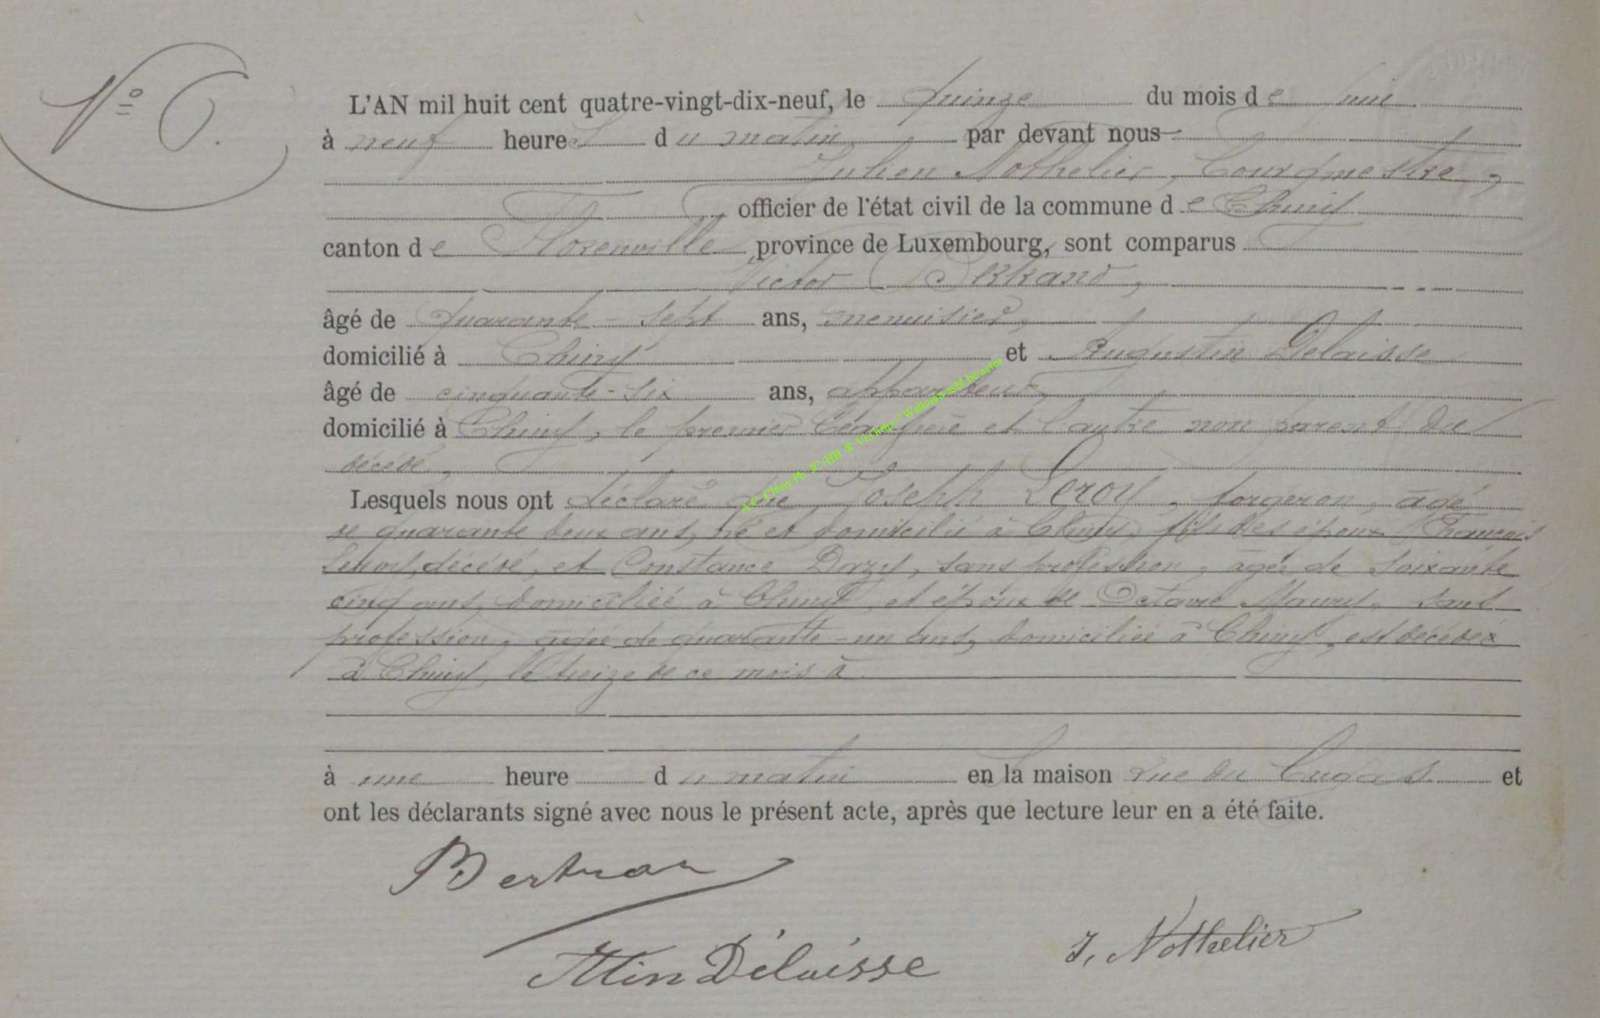 N° 6.
L'AN mil huit cent quatre-vingt-dix-neuf, le quinze du mois de
à neuf heures du matin par devant nous
Julien Nothelier, bourgmestre,
officier de l'état civil de la commune de Chiny
canton de Florenville province de Luxembourg, sont comparus
Victor Bertrand,
âgé de quarante sept ans, menuisier,
domicilié à Chiny et Augustin Delaisse
âgé de cinquante-six ans, appariteur,
domicilié à Chiny, le premier beau frère et l'autre non parent du
décédé,
Lesquels nous ont déclaré que Joseph Leroy, forgeron, âgé
de quarante deux ans, né et domicilié à Chiny, fils des époux François
Leroy, décédé, et Constance Dazy, sans profession, âgée de soixante
cinq ans, domiciliée à Chiny, et époux de Octavie Maury, sans
profession, âgée de quarante-un ans, domiciliée à Chiny, est décédé
à Chiny, le treize de ce mois à
à une heure du matin en la maison rue du et
ont les déclarants signé avec nous le présent acte, après que lecture leur en a été faite.
Bertran
Atin Délaisse
J. Nothelier